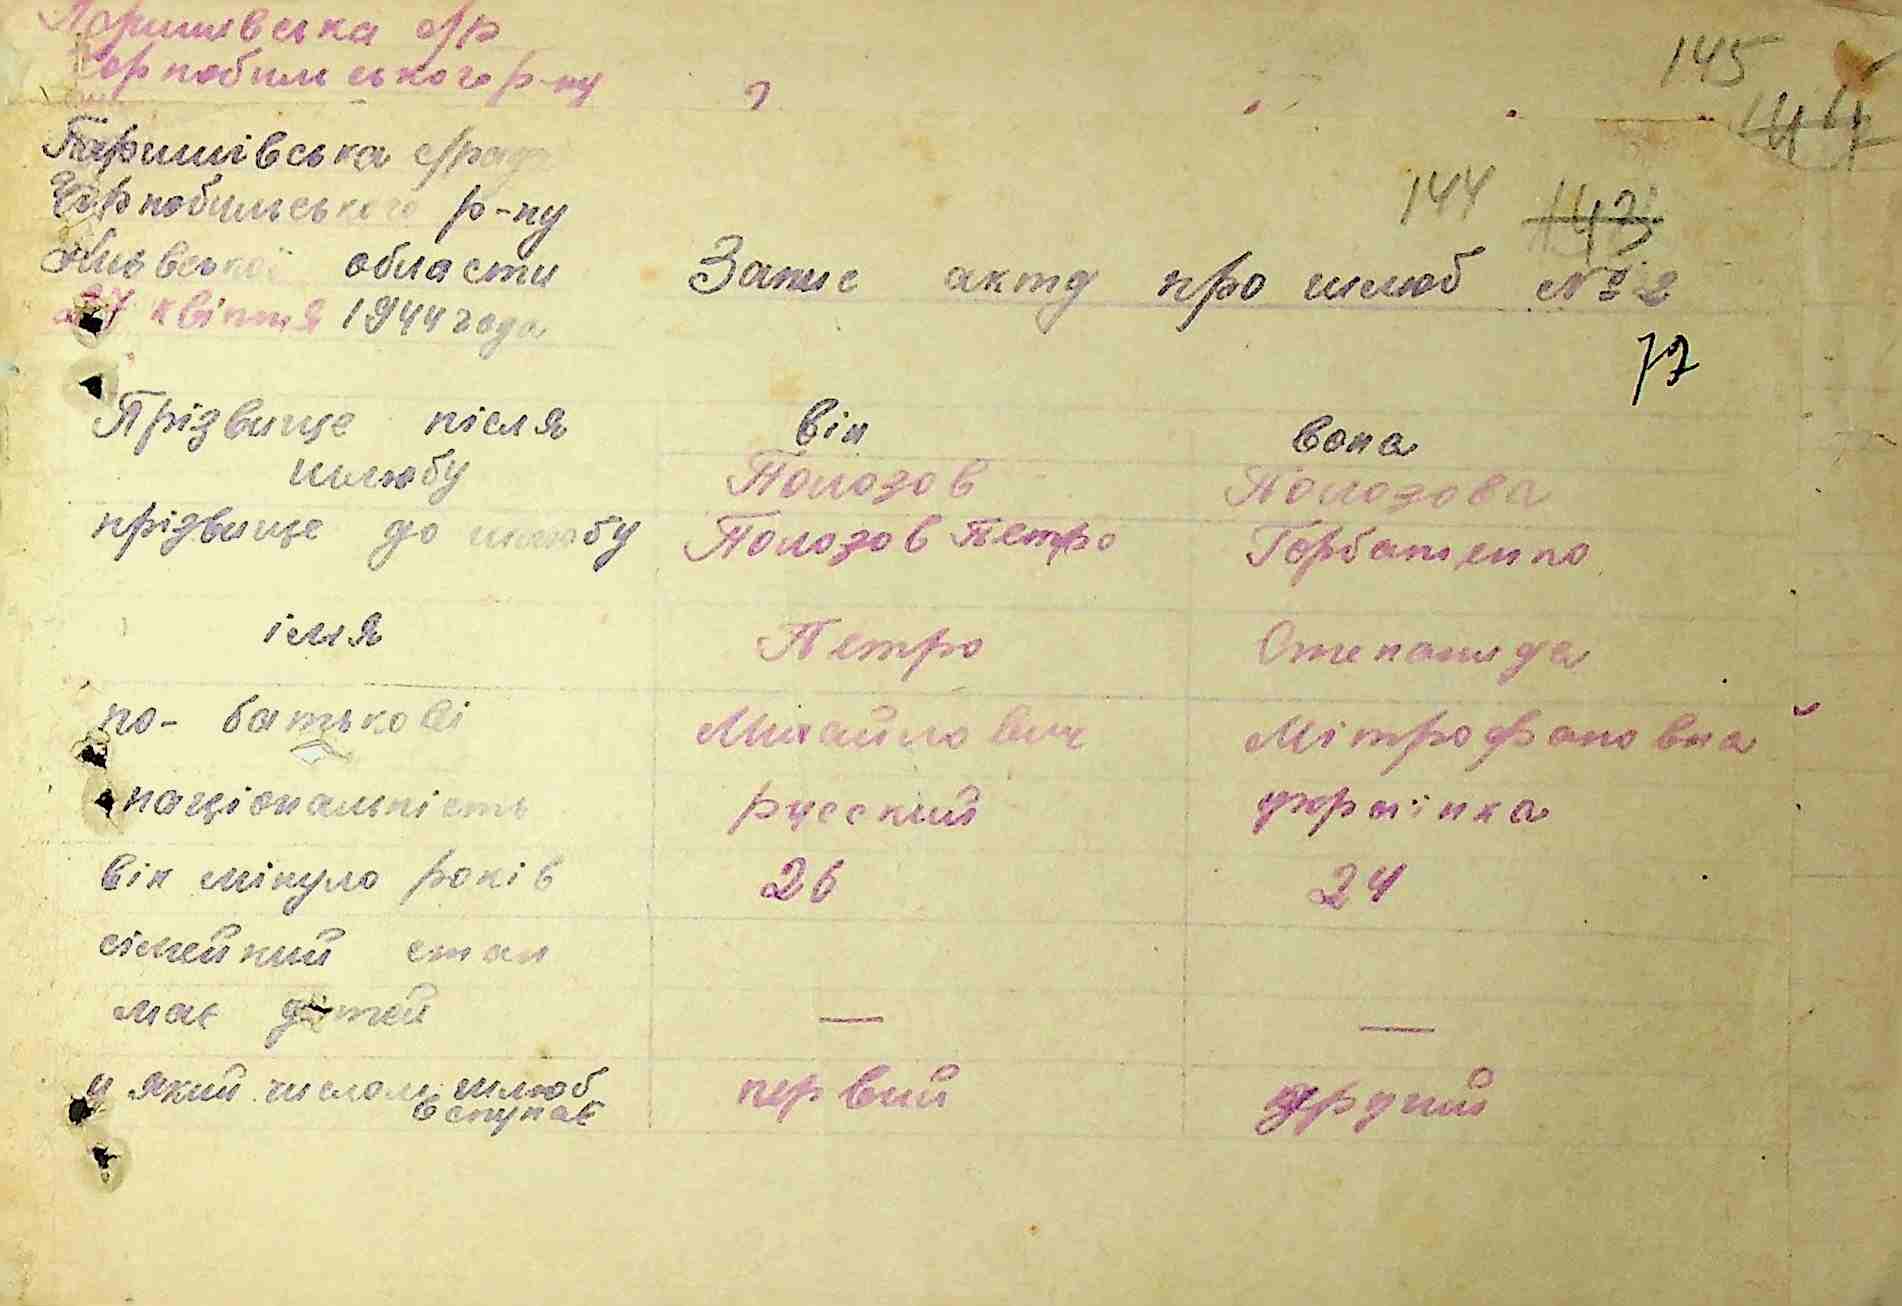 Паришівська с/р
Чорнобильського р-ну
145
144
Паришівська с/рада
Чорнобильського р-ну
144 143
Київської области Запис акту про шлюб № 2
27 квітня 1944 года
77
Прізвище після шлюбу він вона
Полозов Полозова
прізвище до шлюбу Полозов Петро Горбатенко
імя Петро Степанида
по-батькові Михайлович Мітрофановна
національність русский українка
вік мінуло років 26 24
сімейний стан
має дітей — —
у який числом шлюб вступає первий другий